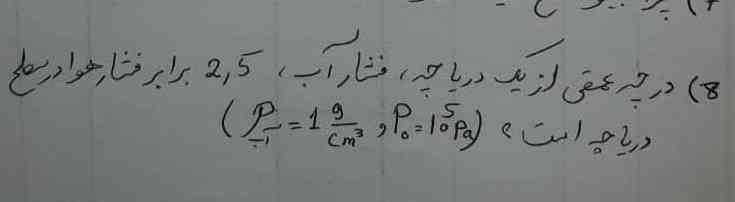 8) در چه عمقی از یک دریاچه، فشار آب، 2,5 برابر فشار هوا در سطح
دریاچه است؟ (ρآب = 1 g/cm³ , P₀ = 10⁵ Pa)